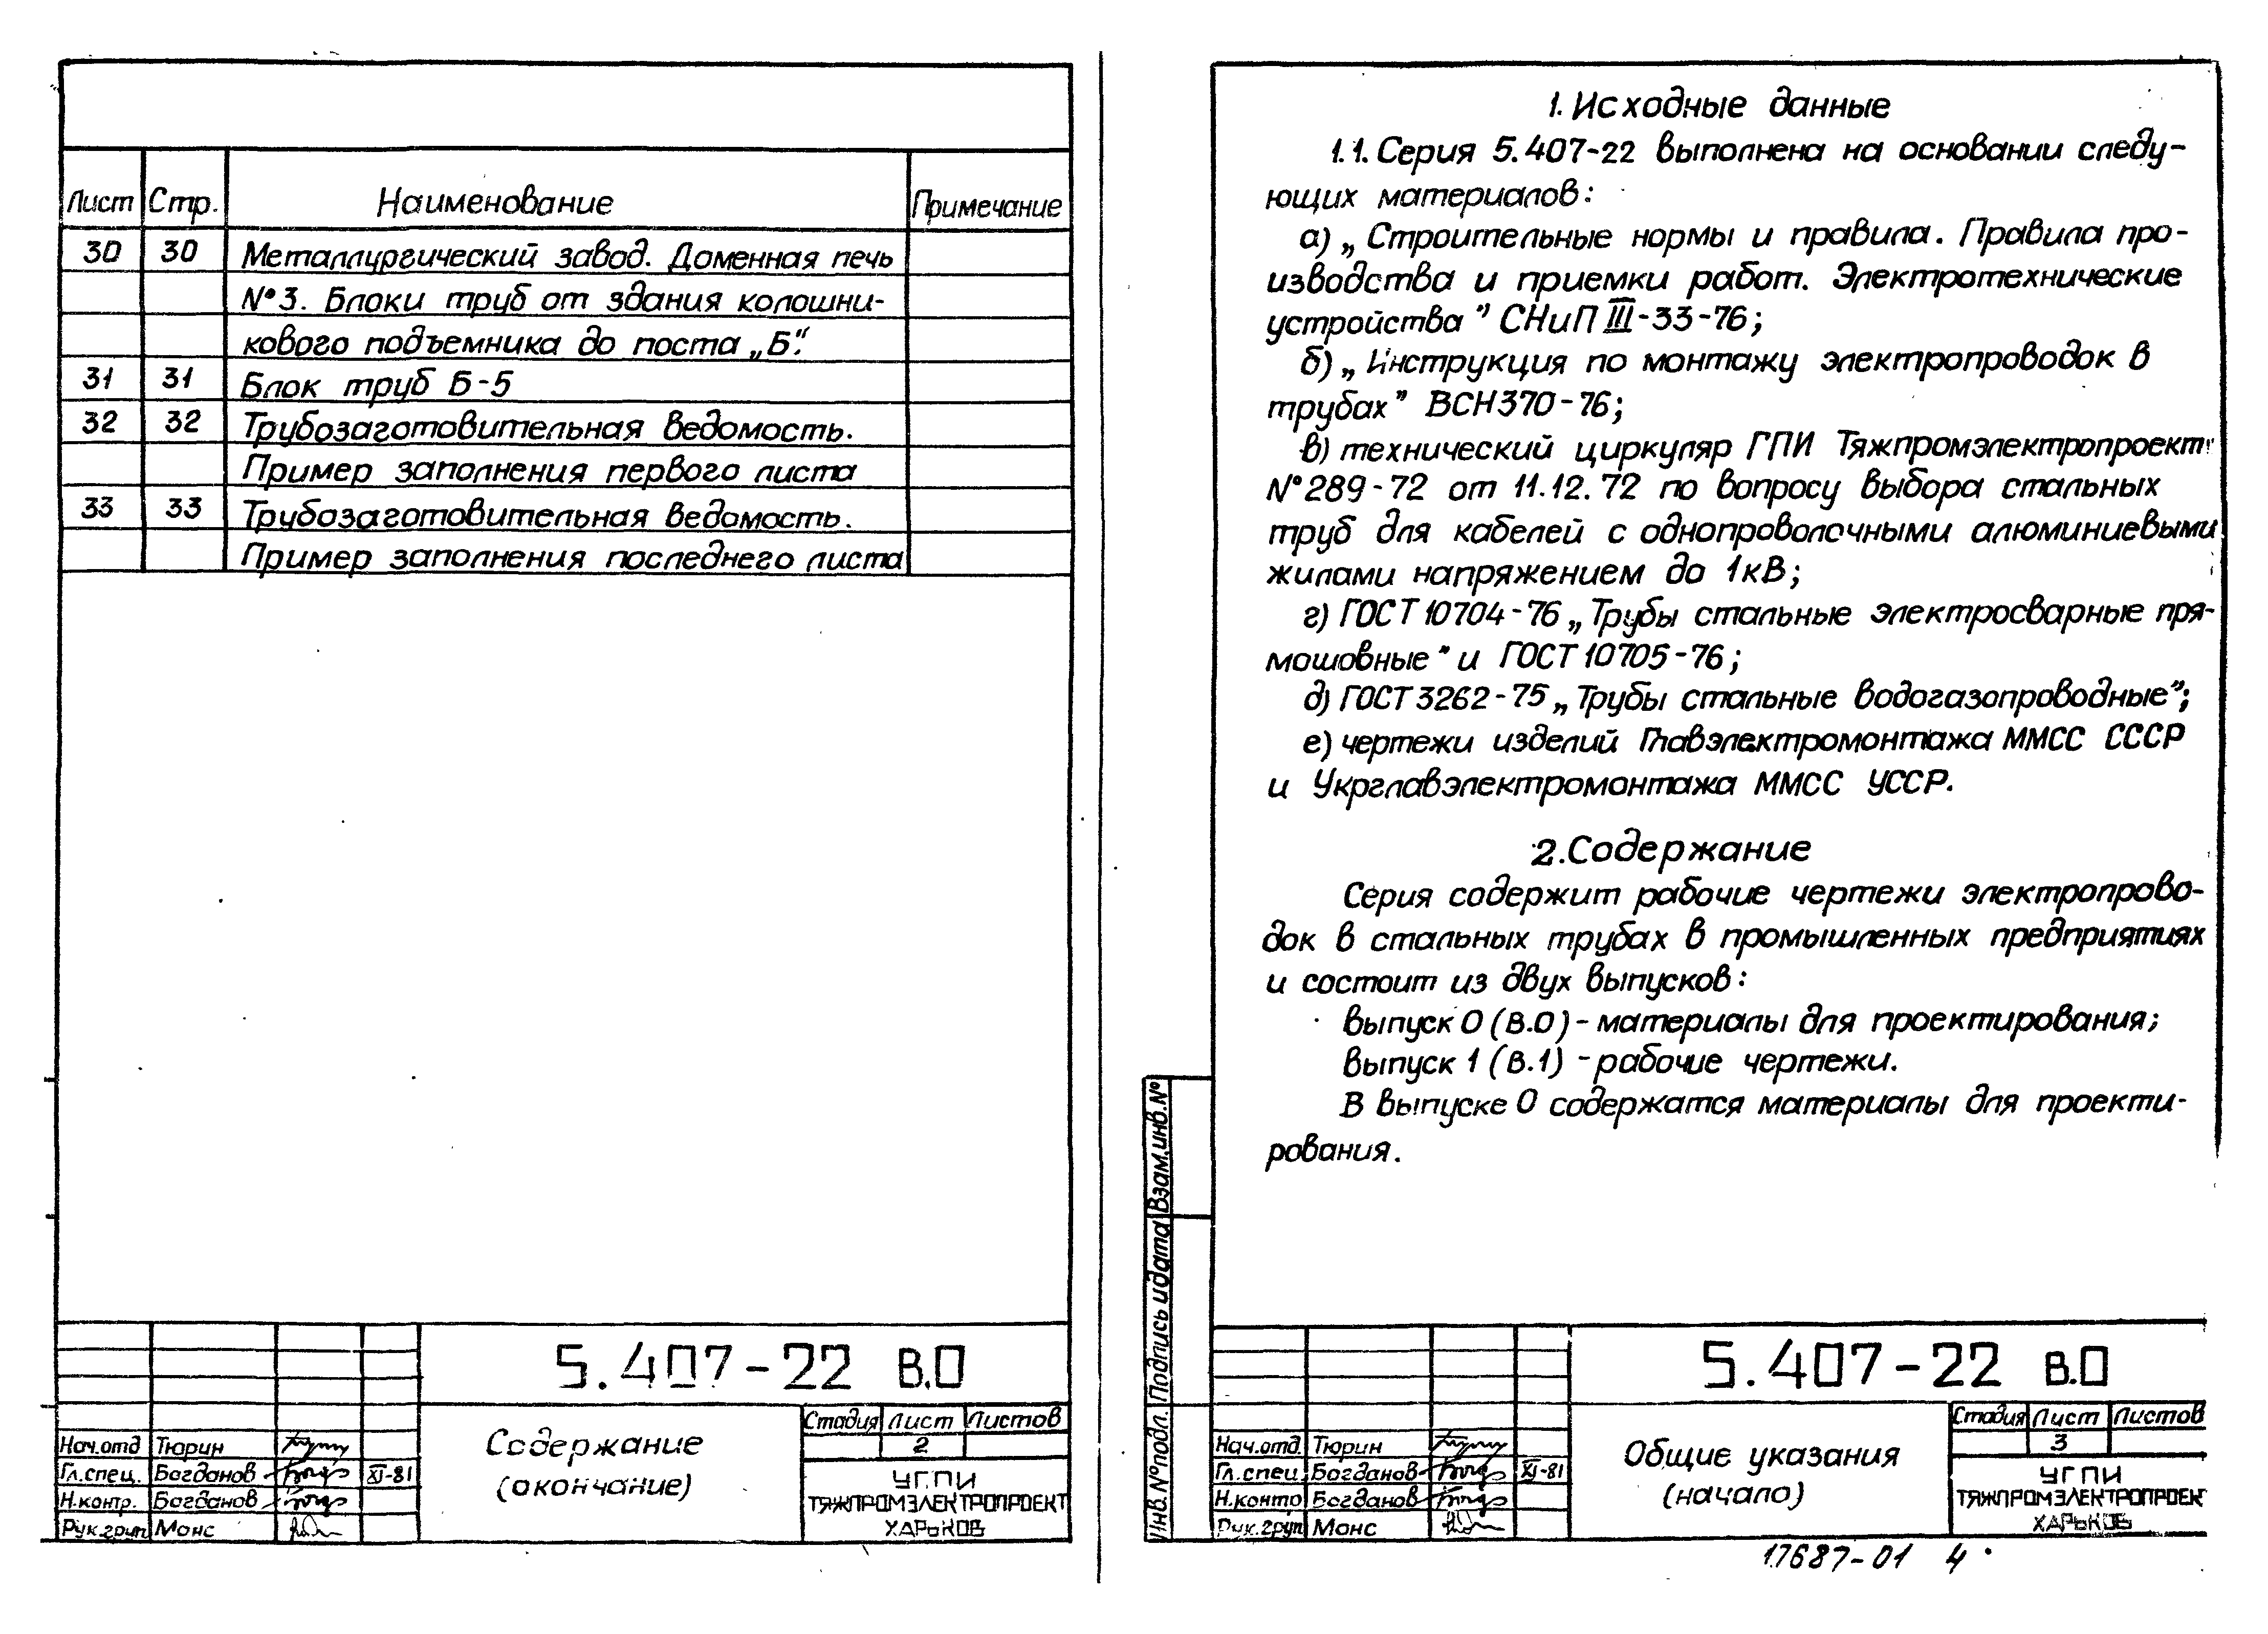 Лист Стр. Наименование Примечание
30 30 Металлургический завод. Доменная печь
№3. Блоки труб от здания колошни-
кового подъемника до поста „Б".
31 31 Блок труб Б-5
32 32 Трубозаготовительная ведомость.
Пример заполнения первого листа
33 33 Трубозаготовительная ведомость.
Пример заполнения последнего листа
5.407-22 В.0
Содержание
(окончание)
Стадия Лист Листов
2
УГПИ
ТЯЖПРОМЭЛЕКТРОПРОЕКТ
ХАРЬКОВ
Нач.отд Тюрин
Гл.спец. Богданов XI-81
Н.контр. Богданов
Рук.груп Монс
1. Исходные данные
1.1. Серия 5.407-22 выполнена на основании следу-
ющих материалов:
а) „Строительные нормы и правила. Правила про-
изводства и приемки работ. Электротехнические
устройства" СНиП III-33-76;
б) „Инструкция по монтажу электропроводок в
трубах" ВСН370-76;
в) технический циркуляр ГПИ Тяжпромэлектропроект
№289-72 от 11.12.72 по вопросу выбора стальных
труб для кабелей с однопроволочными алюминиевыми
жилами напряжением до 1кВ;
г) ГОСТ 10704-76 „Трубы стальные электросварные пря-
мошовные" и ГОСТ 10705-76;
д) ГОСТ 3262-75 „Трубы стальные водогазопроводные";
е) чертежи изделий Главэлектромонтажа ММСС СССР
и Укрглавэлектромонтажа ММСС УССР.
2. Содержание
Серия содержит рабочие чертежи электропрово-
док в стальных трубах в промышленных предприятиях
и состоит из двух выпусков:
выпуск 0 (В.0) - материалы для проектирования;
выпуск 1 (В.1) - рабочие чертежи.
В выпуске 0 содержатся материалы для проекти-
рования.
Инв. №подл. Подпись и дата Взам.инв.№
5.407-22 В.0
Общие указания
(начало)
Стадия Лист Листов
3
УГПИ
ТЯЖПРОМЭЛЕКТРОПРОЕКТ
ХАРЬКОВ
Нач.отд. Тюрин
Гл.спец. Богданов XI-81
Н.контр Богданов
Рук.груп Монс
17687-01 4